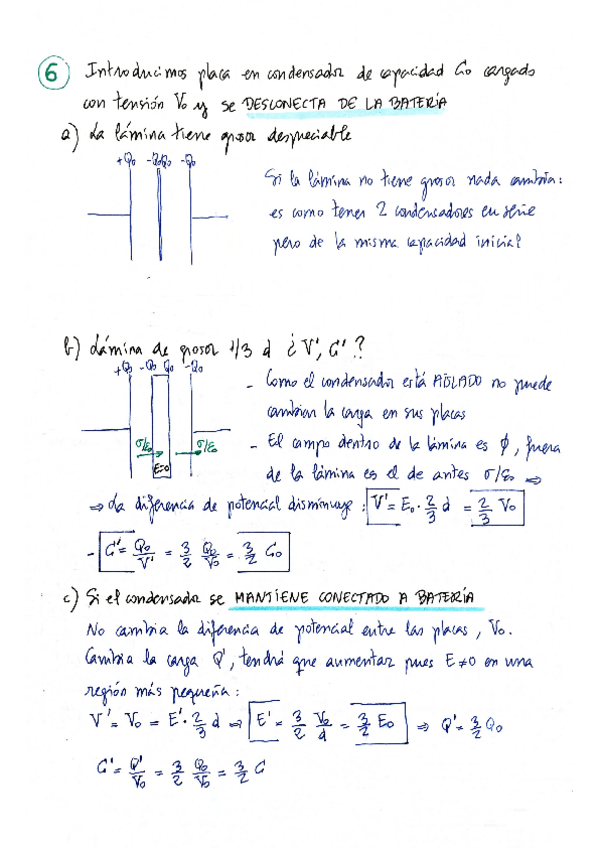 6 Introducimos placa en condensador de capacidad C₀ cargado
con tensión V₀ y se DESCONECTA DE LA BATERÍA
a) La lámina tiene grosor despreciable
+Q₀ -Q₀ Q₀ -Q₀
Si la lámina no tiene grosor nada cambia:
es como tener 2 condensadores en serie
pero de la misma capacidad inicial
b) Lámina de grosor 1/3 d ¿V', C'?
+Q₀ -Q₀ Q₀ -Q₀
- Como el condensador está AISLADO no puede
cambiar la carga en sus placas
σ/ε₀ σ/ε₀
E=0
- El campo dentro de la lámina es ∅, fuera
de la lámina es el de antes σ/ε₀ ⇒
⇒ La diferencia de potencial disminuye: V' = E₀ · 2/3 d = 2/3 V₀
- C' = Q₀/V' = 3/2 Q₀/V₀ = 3/2 C₀
c) Si el condensador se MANTIENE CONECTADO A BATERÍA
No cambia la diferencia de potencial entre las placas, V₀.
Cambia la carga Q', tendrá que aumentar pues E≠0 en una
región más pequeña:
V' = V₀ = E' · 2/3 d ⇒ E' = 3/2 V₀/d = 3/2 E₀ ⇒ Q' = 3/2 Q₀
C' = Q'/V₀ = 3/2 Q₀/V₀ = 3/2 C